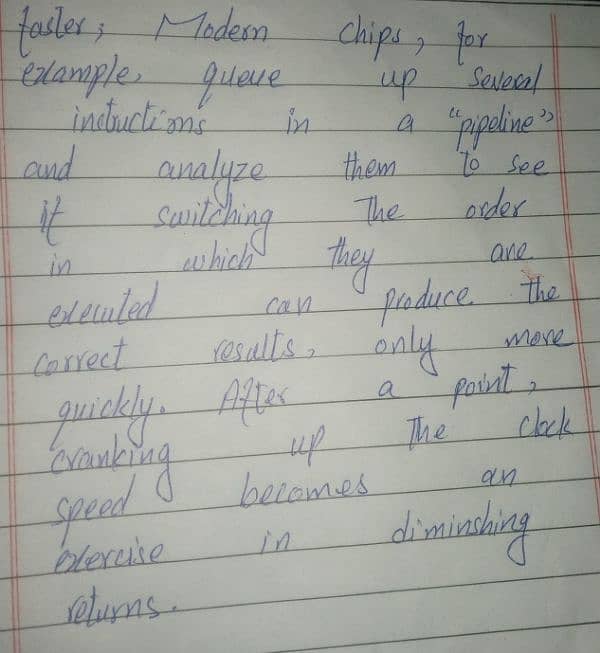 faster; Modern chips, for
example, queue up several
instuctions in a "pipeline"
and analyze them to see
if switching the order
in which they are
executed can produce the
correct results, only more
quickly. After a point,
cranking up the clock
speed becomes an
exercise in diminshing
returns.